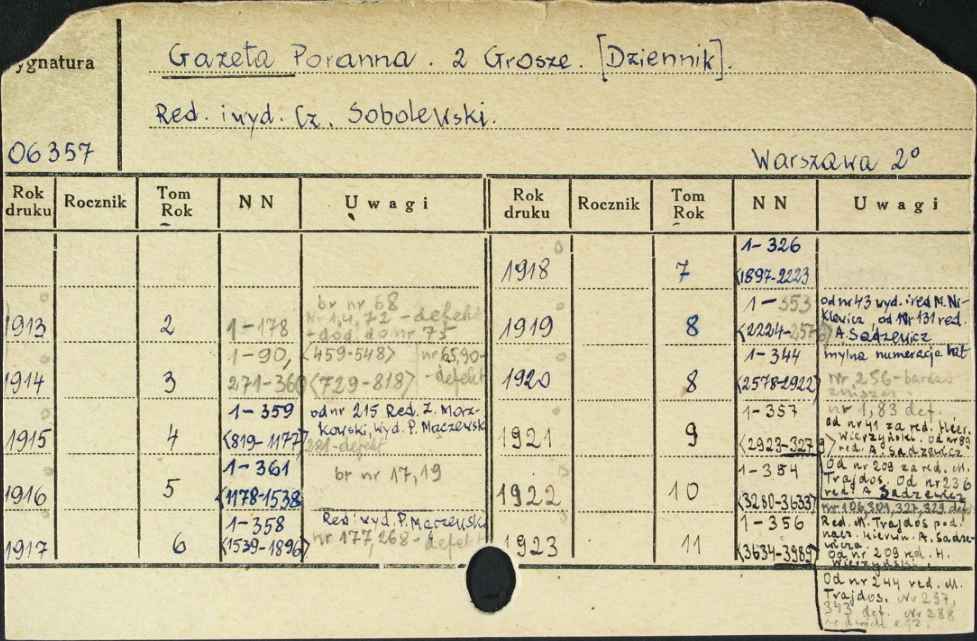 ygnatura
Gazeta Poranna. 2 Grosze. [Dziennik].
Red. i wyd. Cz. Sobolewski.
06357
Warszawa 2°
Rok druku Rocznik Tom Rok NN Uwagi
1913 2 1-178
br nr 68
Nr 1,4,72 - defekt
- dod. do nr 75
1914 3 1-90, <459-548> nr 65,90-
271-360 <729-818> - defekt
1915 4 1-359
<819-1177>
od nr 215 Red. Z. Morz-
kowski, wyd. P. Mączewsk
281-defekt
1916 5 1-361
<1178-1538
br nr 17,19
1917 6 1-358
<1539-1896>
Red i wyd. P. Mączewski
nr 177,268-defekt
Rok druku Rocznik Tom Rok NN Uwagi
1918 7 1-326
<1897-2223
1919 8 1-353
<2224-2576>
od nr 43 wyd. i red M. Ni-
klewicz, od Nr 131 red.
A. Sadzewicz
1920 8 1-344
<2578-2922>
mylna numeracja
nr 256-bardzo
1921 9 1-357
<2923-3279>
nr 1,83 def.
od nr 41 za red.
Wierzyński. Od nr 89
red. A. Sadzewicz
1922 10 1-354
<3280-3633>
Od nr 209 za red. M.
Trajdos. Od nr 236
red. A. Sadzewicz
nr 106,301,327,329 def
1923 11 1-356
<3634-3989>
Red. M. Trajdos pod
nacz. kierun. A. Sadze-
wicza
Od nr 209 red. H.
Wierzyński.
Od nr 244 red. M.
Trajdos. Nr 257,
343 def. Nr 288